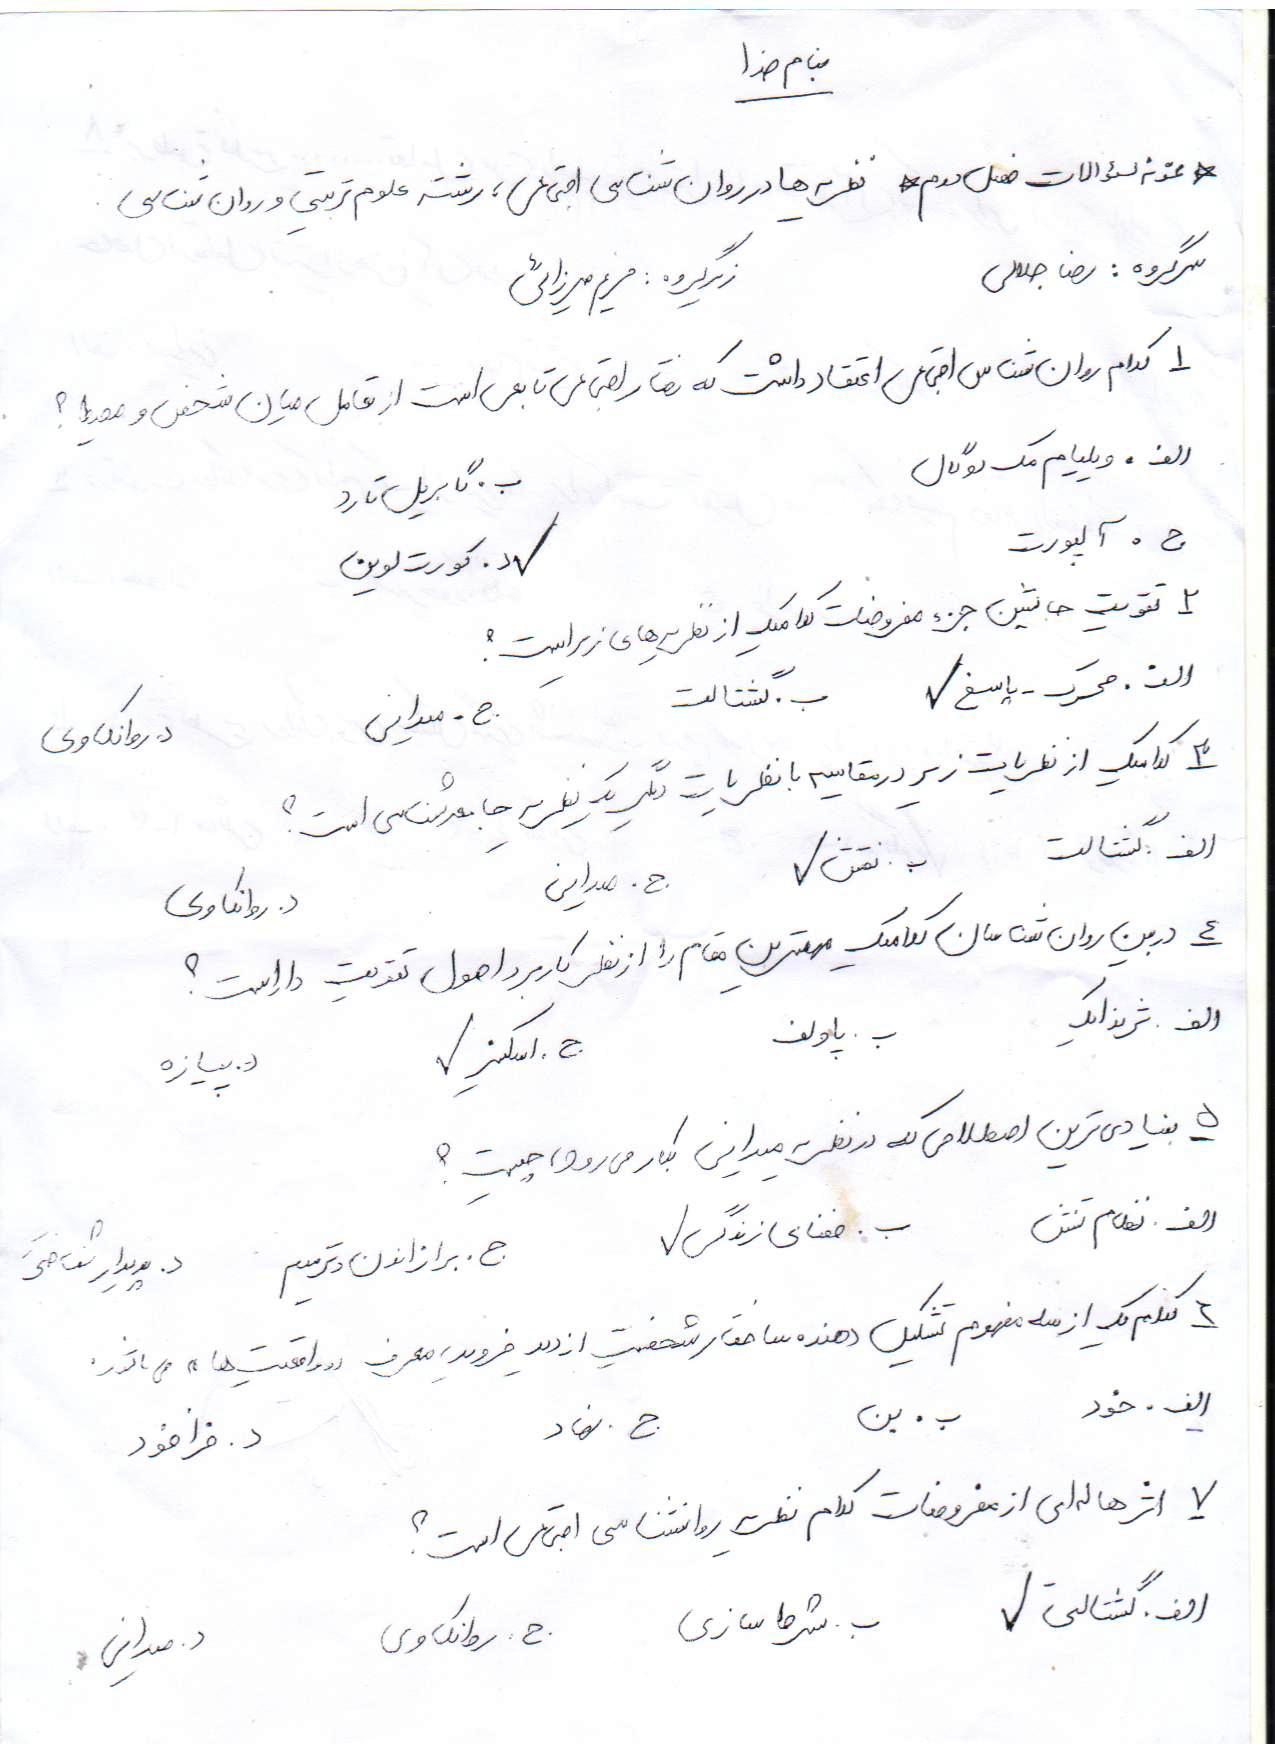 بنام خدا
* نمونه سؤالات فصل دوم * نظریه ها در روان شناسی اجتماعی، رشته علوم تربیتی و روان شناسی
سرگروه : رضا جلالی زیرگروه : مریم میرزائی
۱ کدام روان شناس اجتماعی اعتقاد داشت که رفتار اجتماعی تابعی است از تعامل میان شخص و محیط ؟
الف . ویلیام مک دوگال ب . گابریل تارد
ج . آلپورت د . کورت لوین ✓
۲ تقویت جانشین جزء مفروضات کدامیک از نظریه های زیر است ؟
الف . محرک - پاسخ ✓ ب . گشتالت ج - میدانی د . روانکاوی
۳ کدامیک از نظریات زیر در مقایسه با نظریات دیگر یک نظریه جامعه شناسی است ؟
الف . گشتالت ب . نقش ✓ ج . میدانی د . روانکاوی
٤ در بین روان شناسان کدامیک مهمترین مقام را از نظر کاربرد اصول تقویت داراست ؟
الف . ثرندایک ب . پاولف ج . اسکینر ✓ د . پیاژه
۵ بنیادی ترین اصطلاحی که در نظریه میدانی بکار می رود، چیست ؟
الف . نظام تنش ب . فضای زندگی ✓ ج . براز اندن و ترمیم د . پدیدار شناختی
۶ کدام یک از سه مفهوم تشکیل دهنده ساختار شخصیت از دید فروید، معرف «واقعیت ها» می باشد.
الف . خود ب . بن ج . نهاد د . فراخود
۷ اثر هاله ای از مفروضات کدام نظریه روانشناسی اجتماعی است ؟
الف . گشتالتی ✓ ب . شرطی سازی ج . روانکاوی د . میدانی